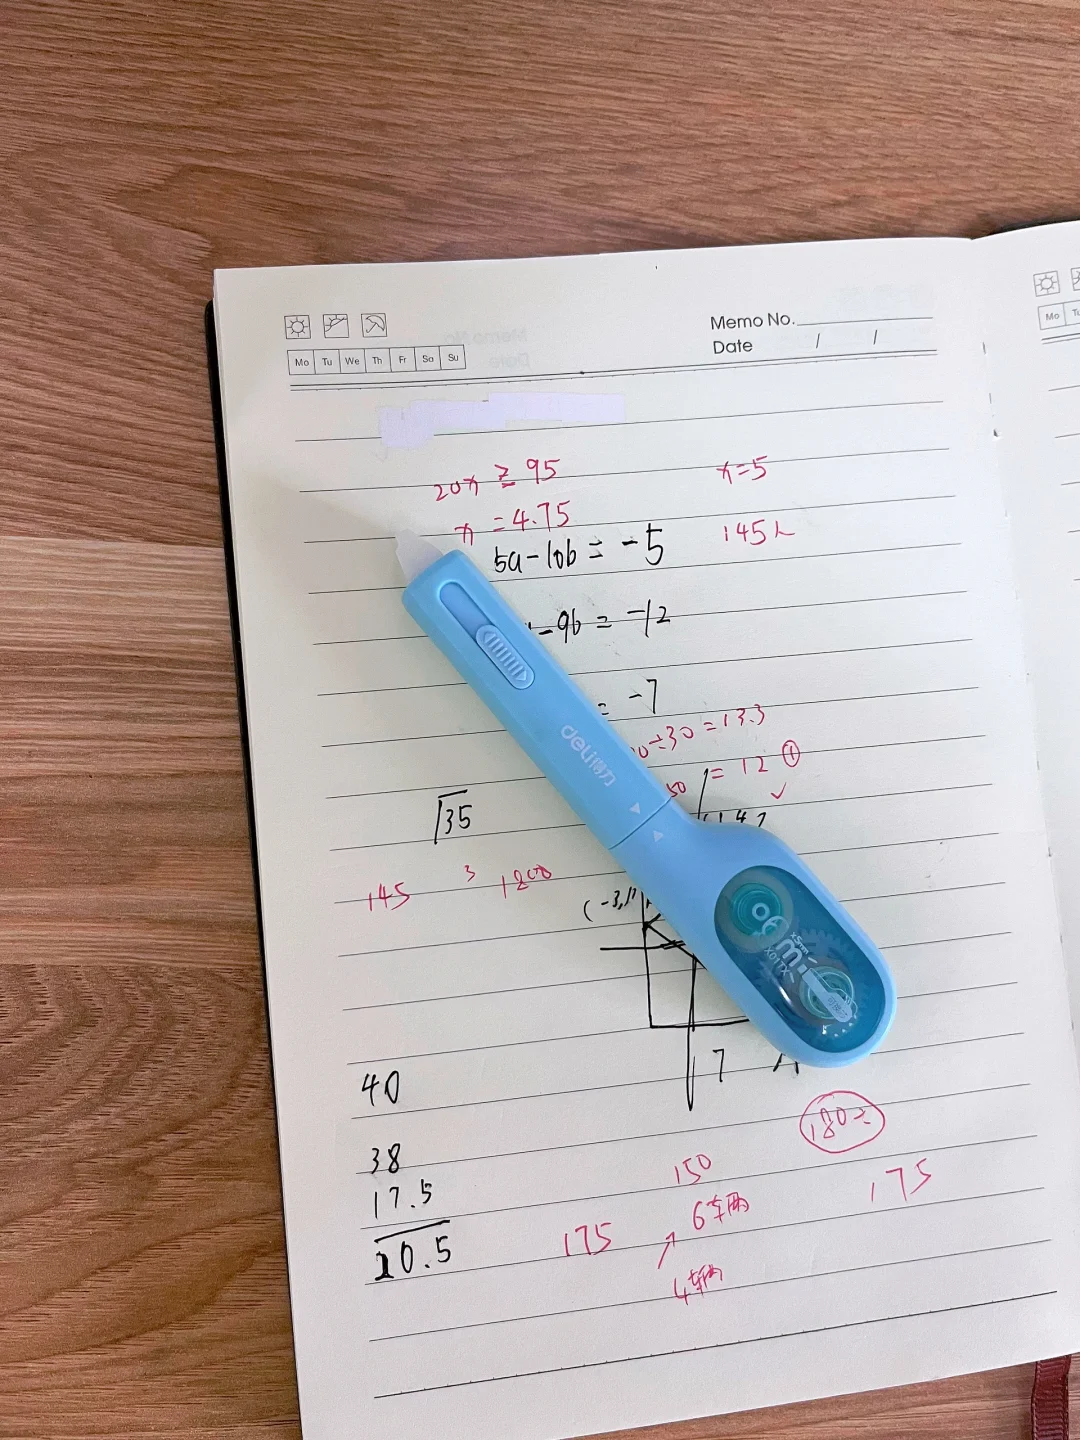 Memo No.
Date / /
Mo Tu We Th Fr Sa Su
Mo
20x ≥ 95
x=5
x = 4.75
145人
5a-10b = -5
-9b = -12
= -7
÷30 = 13.3
50
= 12 ①
√35
145 3 1200
(-3,1)
deli得力
X01TX
40
17
38
17.5
20.5
180÷
150
175
6车辆
175
4辆